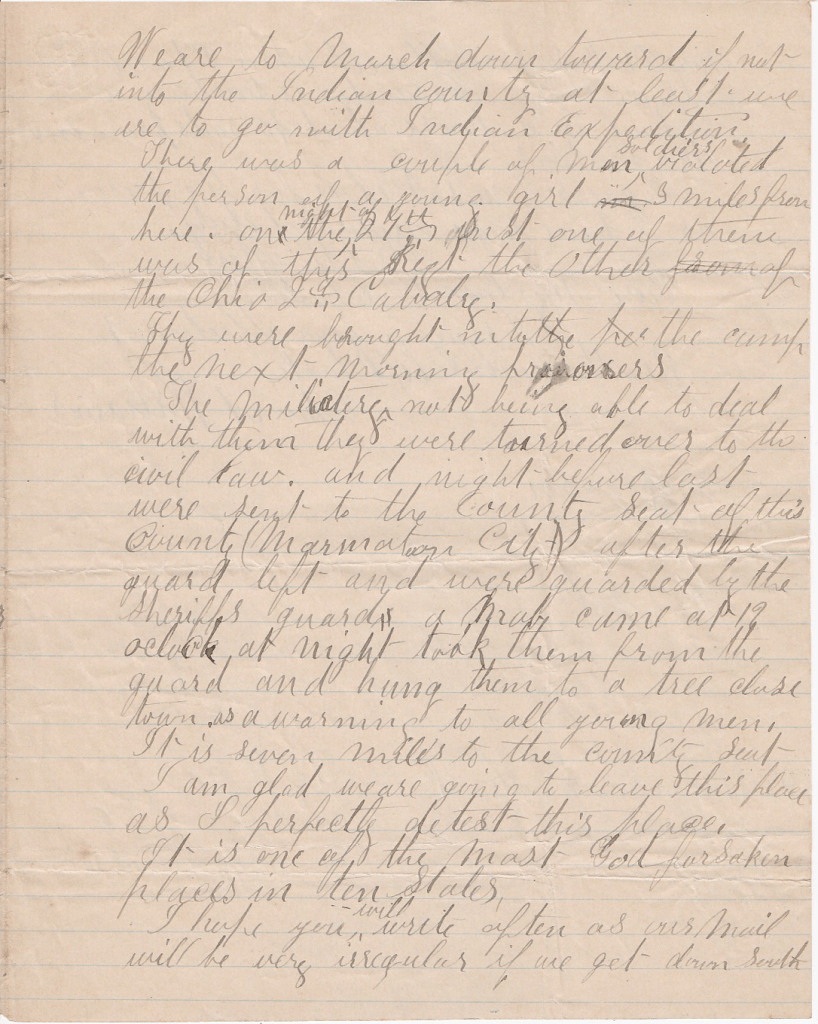 We are to March down toward if not
into the Indian county at least we
are to go with Indian Expedition.
There was a couple of Men soldiers violated
the person of a young girl in 3 miles from
here. on night of the 27th inst one of them
was of this Regt the Other from of
the Ohio 2nd Cavalry.
They were brought into the the camp
the next morning prisoners
The military not being able to deal
with them they were turned over to the
civil law. and night before last
were sent to the County Seat of this
County (Marmaton City) after the
guard left and were guarded by the
sheriffs guards a Mob came at 12
oclock at night took them from the
guard and hung them to a tree close
town. as a warning to all young men.
It is seven miles to the county seat
I am glad we are going to leave this place
as I perfectly detest this place.
It is one of the most God forsaken
places in ten States,
I hope you will write often as our Mail
will be very irregular if we get down south